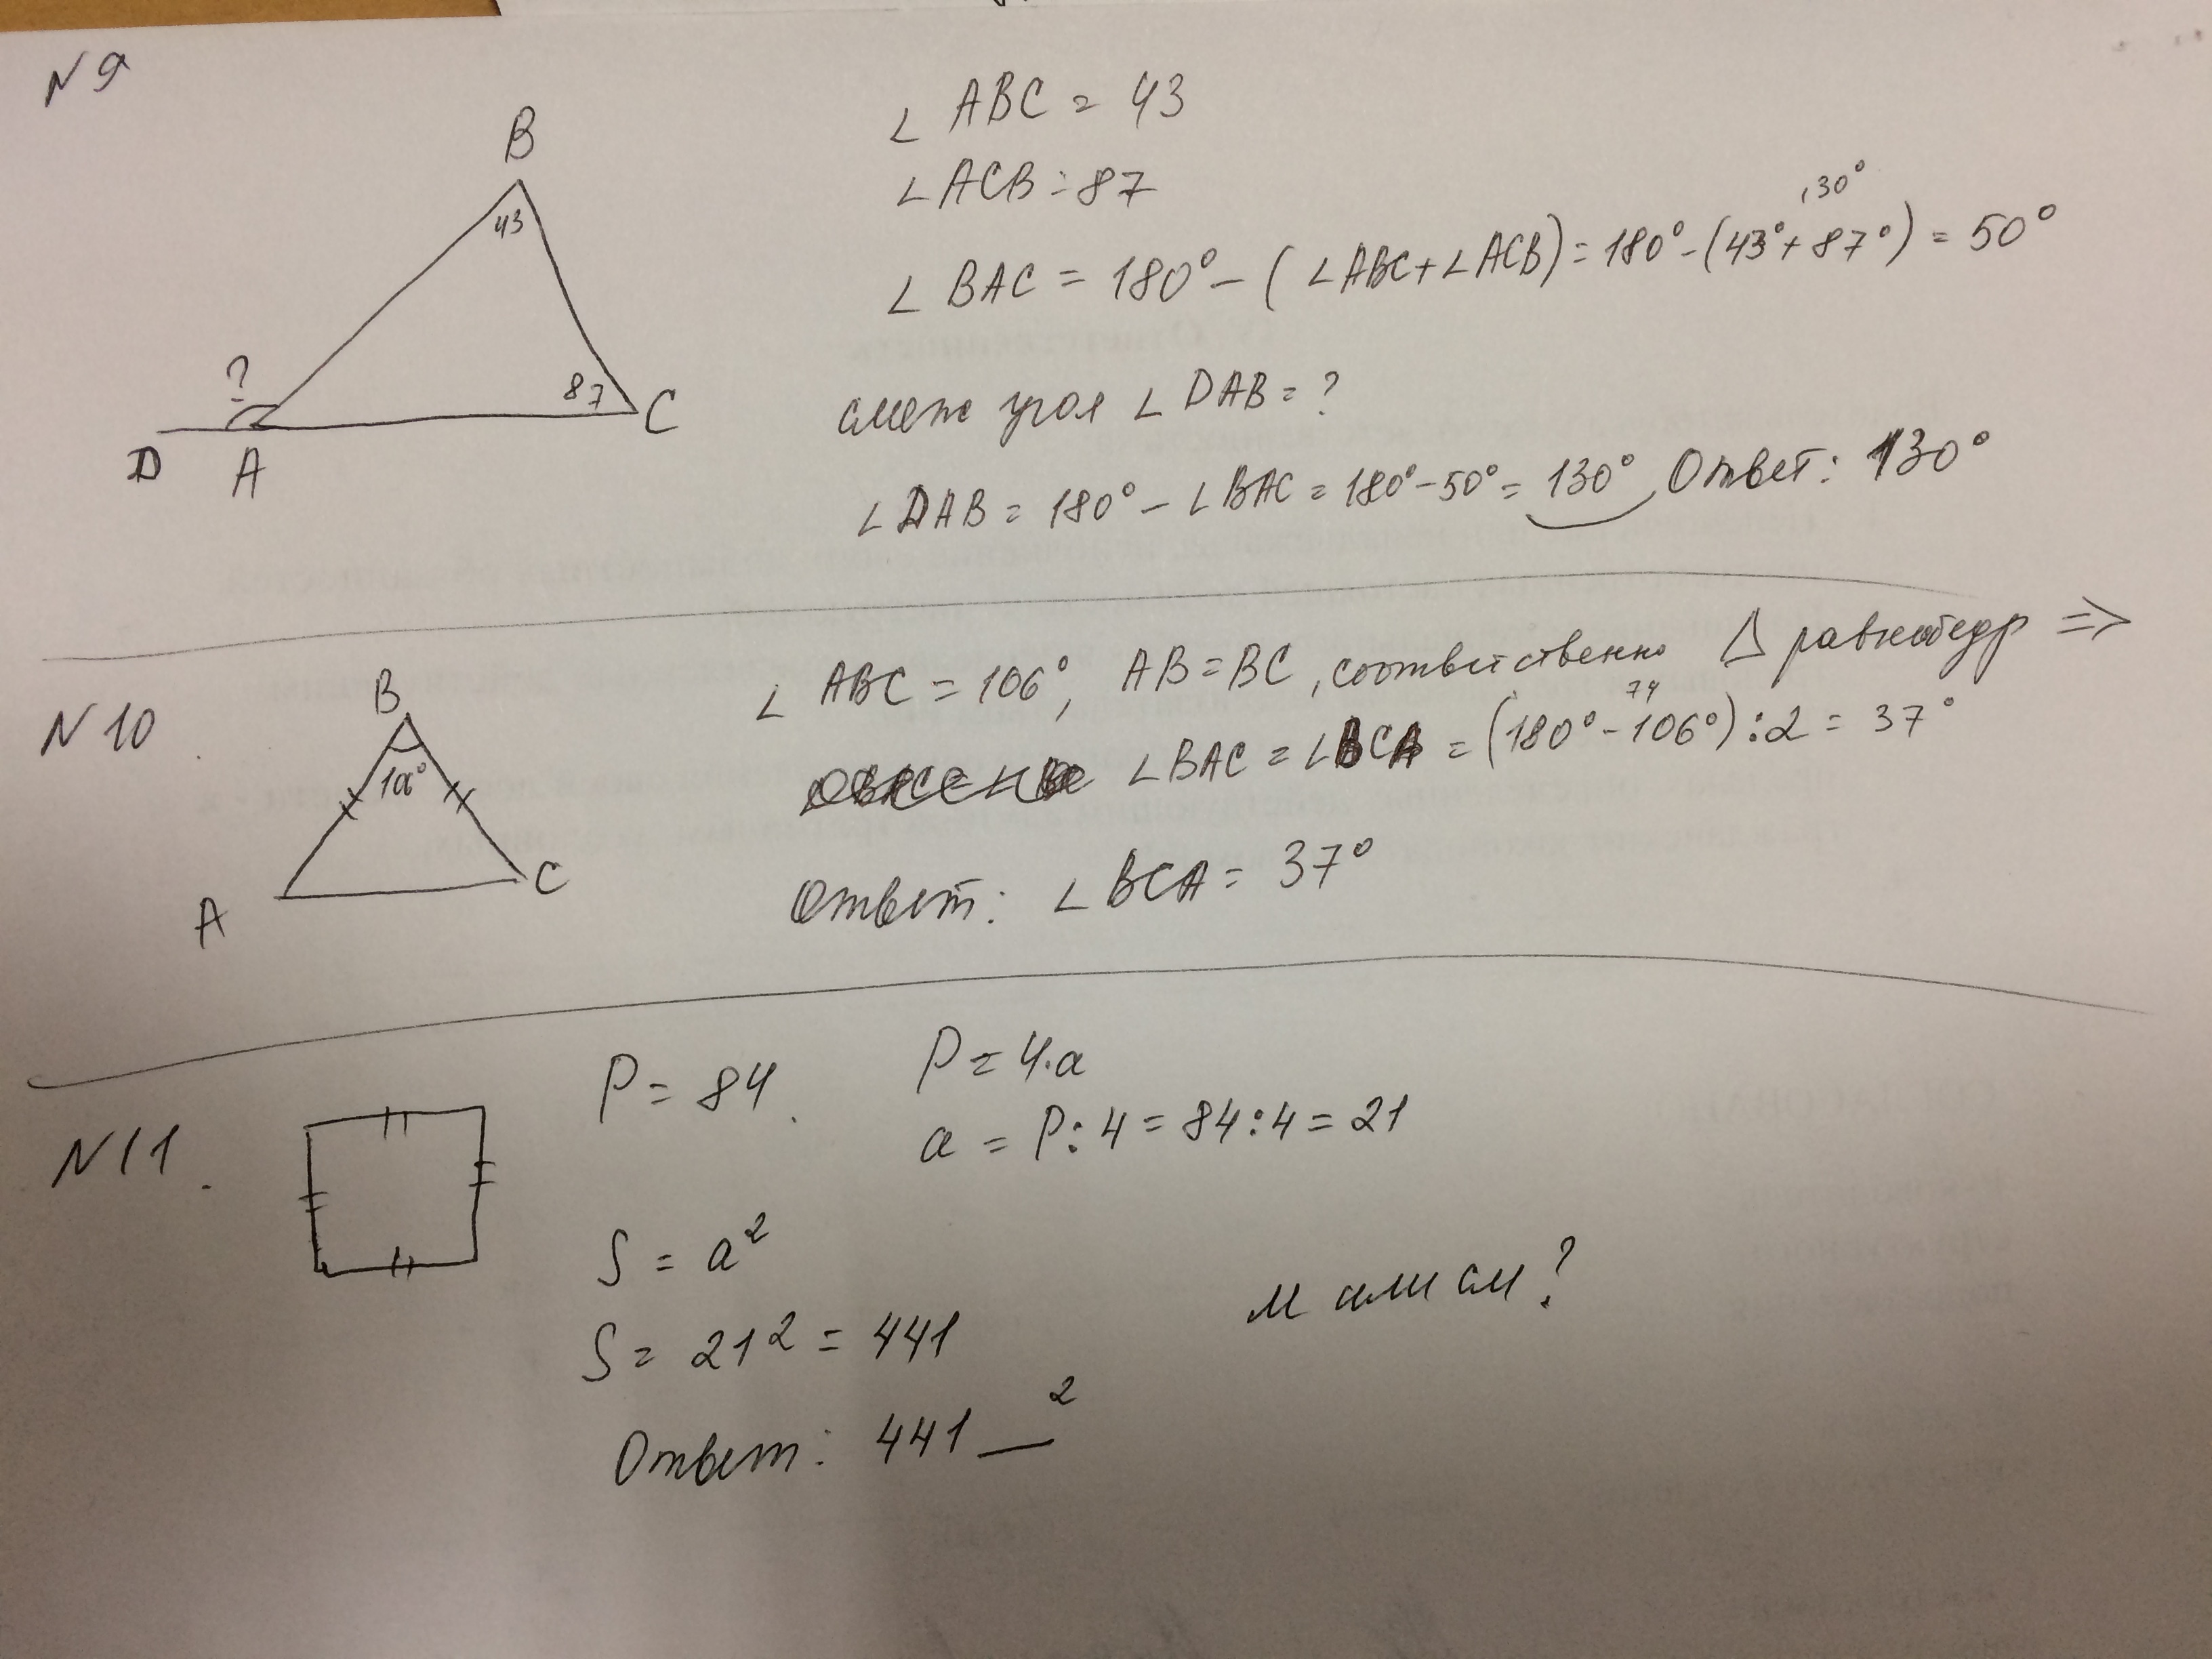 N 9
B
43
87
?
D
A
C
∠ ABC = 43
∠ ACB = 87
130°
∠ BAC = 180° - (∠ABC + ∠ACB) = 180° - (43° + 87°) = 50°
смеж угол ∠ DAB = ?
∠ DAB = 180° - ∠ BAC = 180° - 50° = 130° Ответ: 130°
N 10
B
A
C
∠ ABC = 106°, AB = BC, соответственно Δ равнобедр ⇒
74
∠ BAC = ∠ BCA = (180° - 106°) : 2 = 37°
Ответ: ∠ BCA = 37°
N 11.
P = 84.
P = 4·a
a = P : 4 = 84 : 4 = 21
S = a²
S = 21² = 441
м или см?
Ответ: 441 __²